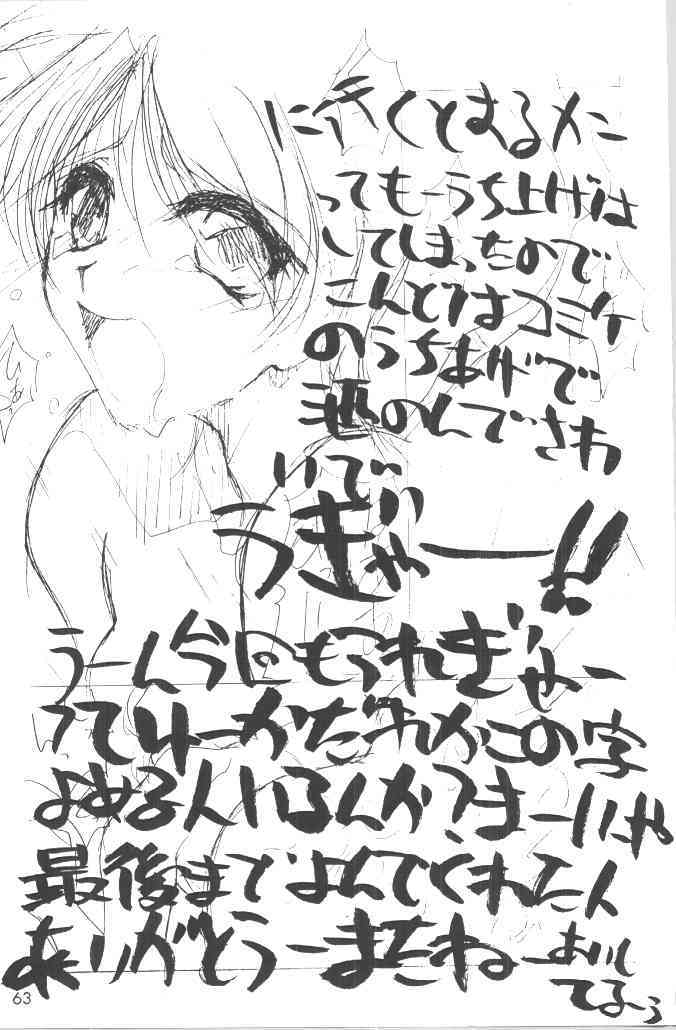 に行くとまるメニ
ってもーうち上げは
してしまったので
こんどはコミケ
のうちあげで
酒のんでさわ
いでい
うぎゃー!!
うーん今にもつれぎゃー
ってゆーかだれかこの字
よめる人いるんか?まーいいや
最後までよんでくれた人
ありがとうーまたねーあいし
てるぅ
63